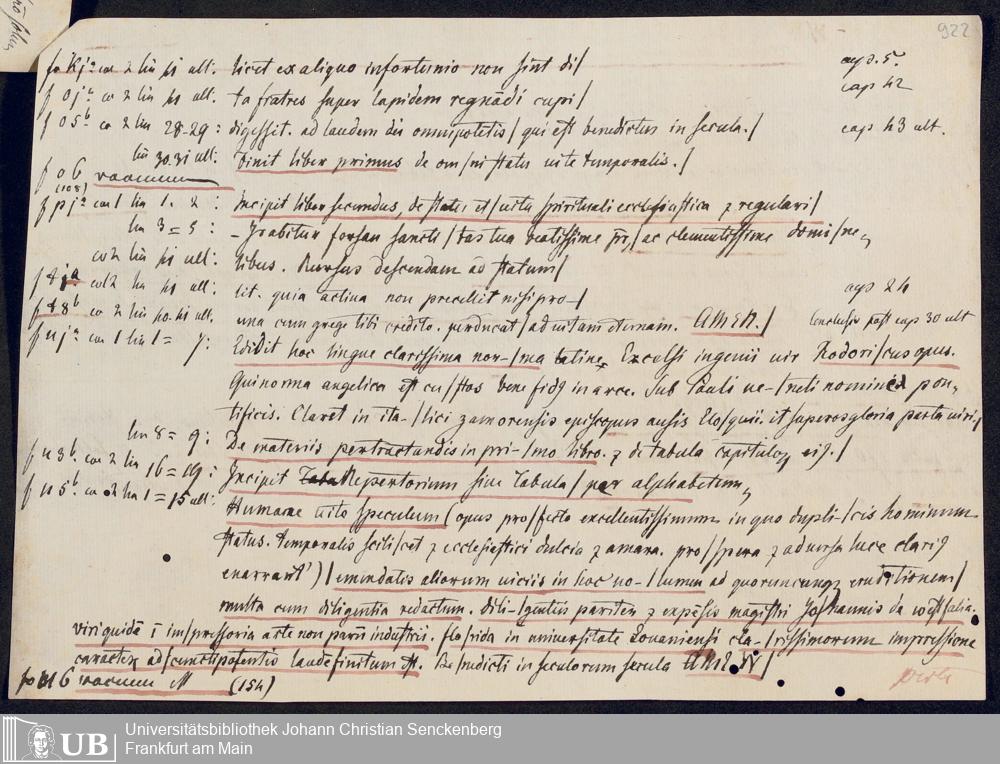 922
fo Kjª co 2 lin 41 ult. licet ex aliquo infortunio non sint di/ cap. 5.
f ojª co 2 lin 41 ult. ta fratres super lapidem regnãdi cupi/ cap 42
f o5ᵇ co 2 lin 28-29: digessit. ad laudem dei omnipotẽtis/ qui est benedictus in secula./ cap 43 ult.
lin 30.31 ult. Finit liber primus de om/ni statu uite temporalis./
f o6 vacuum
(108)
f pjª col 1 lin 1. 2: Incipit liber secundus, de statu et/uita spirituali ecclesiastica ⁊ regulari/
lin 3=5: - Grabitur forsan sancti/tas tua beatissime pr̃,/ac clementissime domi/ne,
co 2 lin 41 ult: libus. Rursus descendam ad statum/
f tjª col 2 lin 41 ult: lit. quia actiua non precellit nisi pro-/ cap 24
f t8ᵇ co 2 lin 40.41 ult. una cum grege tibi credito. perducat/ad uitam eternam. AMEN./ Conclusio post cap 30 ult
f ujª col 1 lin 1=7: Edidit hoc lingue clarissima nor-/ma latine, Excelsi ingenii uir Rodori/cus opus.
Qui norma angelica est cu/stos bene fidꝰ in arce. Sub Pauli ue-/neti nomine pon,
tificis. Claret in ita-/lici zamorensis episcopus ausis Elo/quii. it superos gloria parta uiri,
lin 8=9: De materiis pertractandis in pri-/mo libro. ⁊ de tabula capituloꝝ eiꝰ./
f u3ᵇ. co 2 lin 16=19: Incipit Repertorium siue tabula/per alphabetum,
f u5ᵇ. co 2 lin 1=15 ult: Humane uite speculum (opus pro/fecto excellentissimum in quo dupli-/cis hominum
status. temporalis scili/cet ⁊ ecclesiastici dulcia ⁊ amara. pro/spera ⁊ aduersa luce clariꝰ
enarrant') / emendatis aliorum uiciis in hoc uo-/lumen ad quoruncunqꝫ eruditionem/
multa cum diligentia redactum. dili-/gentia pariter ⁊ expẽsis magistri Jo/hannis de westfalia.
viri quidẽ ĩ im/pressoria arte non parũ industrii. flo/rida in universitate Louaniensi cla-/rissimorum impressione
caracteꝝ ad/cunctipotentis laudẽ finitum est. Be/nedicti in seculorum secula AMEN/
fo u6 vacuum (154)
Universitätsbibliothek Johann Christian Senckenberg
Frankfurt am Main
UB